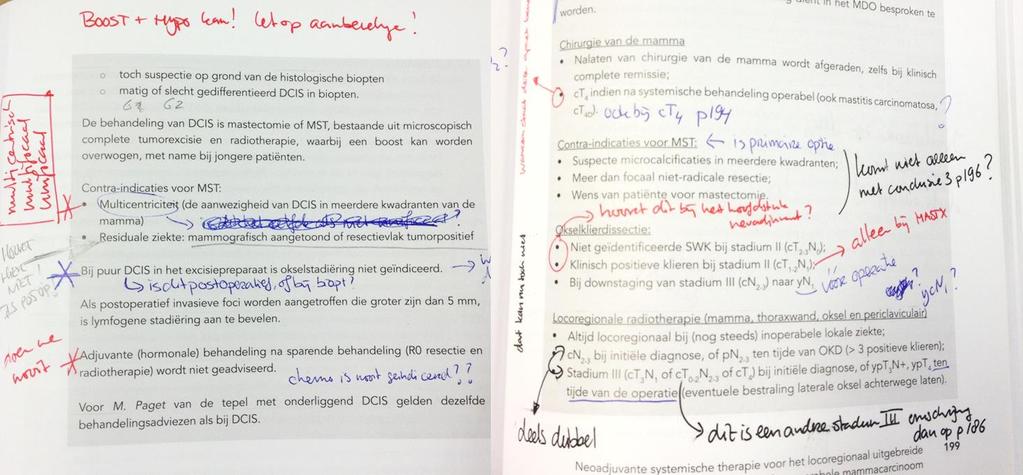 BOOST + Hypo kan! let op aanbevelinge!
○ toch suspectie op grond van de histologische biopten
○ matig of slecht gedifferentieerd DCIS in biopten.
G2
De behandeling van DCIS is mastectomie of MST, bestaande uit microscopisch
complete tumorexcisie en radiotherapie, waarbij een boost kan worden
overwogen, met name bij jongere patiënten.
multicentrisch
multifocaal
unifocaal
Contra-indicaties voor MST:
• Multicentriciteit (de aanwezigheid van DCIS in meerdere kwadranten van de
mamma)
?
• Residuale ziekte: mammografisch aangetoond of resectievlak tumorpositief
Bij puur DCIS in het excisiepreparaat is okselstadiëring niet geïndiceerd.
→ is dit postoperatief, of bij biopt?
Als postoperatief invasieve foci worden aangetroffen die groter zijn dan 5 mm,
is lymfogene stadiëring aan te bevelen.
Adjuvante (hormonale) behandeling na sparende behandeling (R0 resectie en
radiotherapie) wordt niet geadviseerd.
chemo is nooit geïndiceerd??
Voor M. Paget van de tepel met onderliggend DCIS gelden dezelfde
behandelingsadviezen als bij DCIS.
in het MDO besproken te
worden.
Chirurgie van de mamma
• Nalaten van chirurgie van de mamma wordt afgeraden, zelfs bij klinisch
complete remissie;
• cT4 indien na systemische behandeling operabel (ook mastitis carcinomatosa,
cT4D). ook bij cT4 p194 ?
Contra-indicaties voor MST: ← is primaire optie
• Suspecte microcalcificaties in meerdere kwadranten;
• Meer dan focaal niet-radicale resectie;
• Wens van patiënte voor mastectomie.
komt niet alleen
met conclusie 3 p196?
hoort dit bij het hoofdstuk
neoadjuvant?
Okselklierdissectie:
• Niet geïdentificeerde SWK bij stadium II (cT2-3N0);
• Klinisch positieve klieren bij stadium II (cT1-2N1);
→ alleen bij MARIX
• Bij downstaging van stadium III (cN2-3) naar yN1.
vóór operatie?
ycN1?
Locoregionale radiotherapie (mamma, thoraxwand, oksel en periclaviculair)
• Altijd locoregionaal bij (nog steeds) inoperabele lokale ziekte;
• cN2-3 bij initiële diagnose, of pN2-3 ten tijde van OKD (> 3 positieve klieren);
• Stadium III (cT3N1 of cT0-2N2-3 of cT4) bij initiële diagnose, of ypT3N+, ypT4 ten
tijde van de operatie (eventuele bestraling laterale oksel achterwege laten).
deels dubbel
→ dit is een andere stadium III omschrijving
dan op p186
199
Neoadjuvante systemische therapie voor het locoregionaal uitgebreide
mammacarcinoom